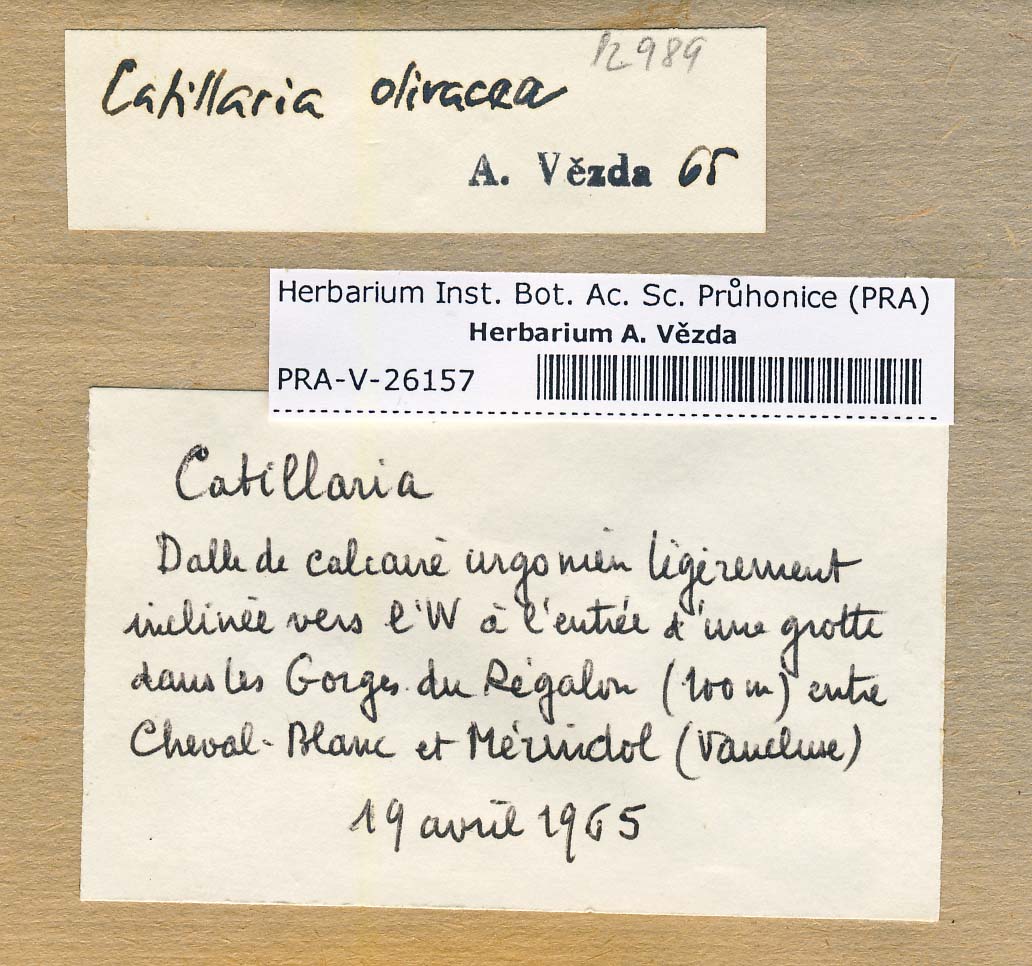 12989
Catillaria olivacea
A. Vězda 65
Herbarium Inst. Bot. Ac. Sc. Průhonice (PRA)
Herbarium A. Vězda
PRA-V-26157
Catillaria
Dalle de calcaire urgonien légèrement
inclinée vers l'W à l'entrée d'une grotte
dans les Gorges du Régalon (100 m) entre
Cheval-Blanc et Mérindol (Vaucluse)
19 avril 1965